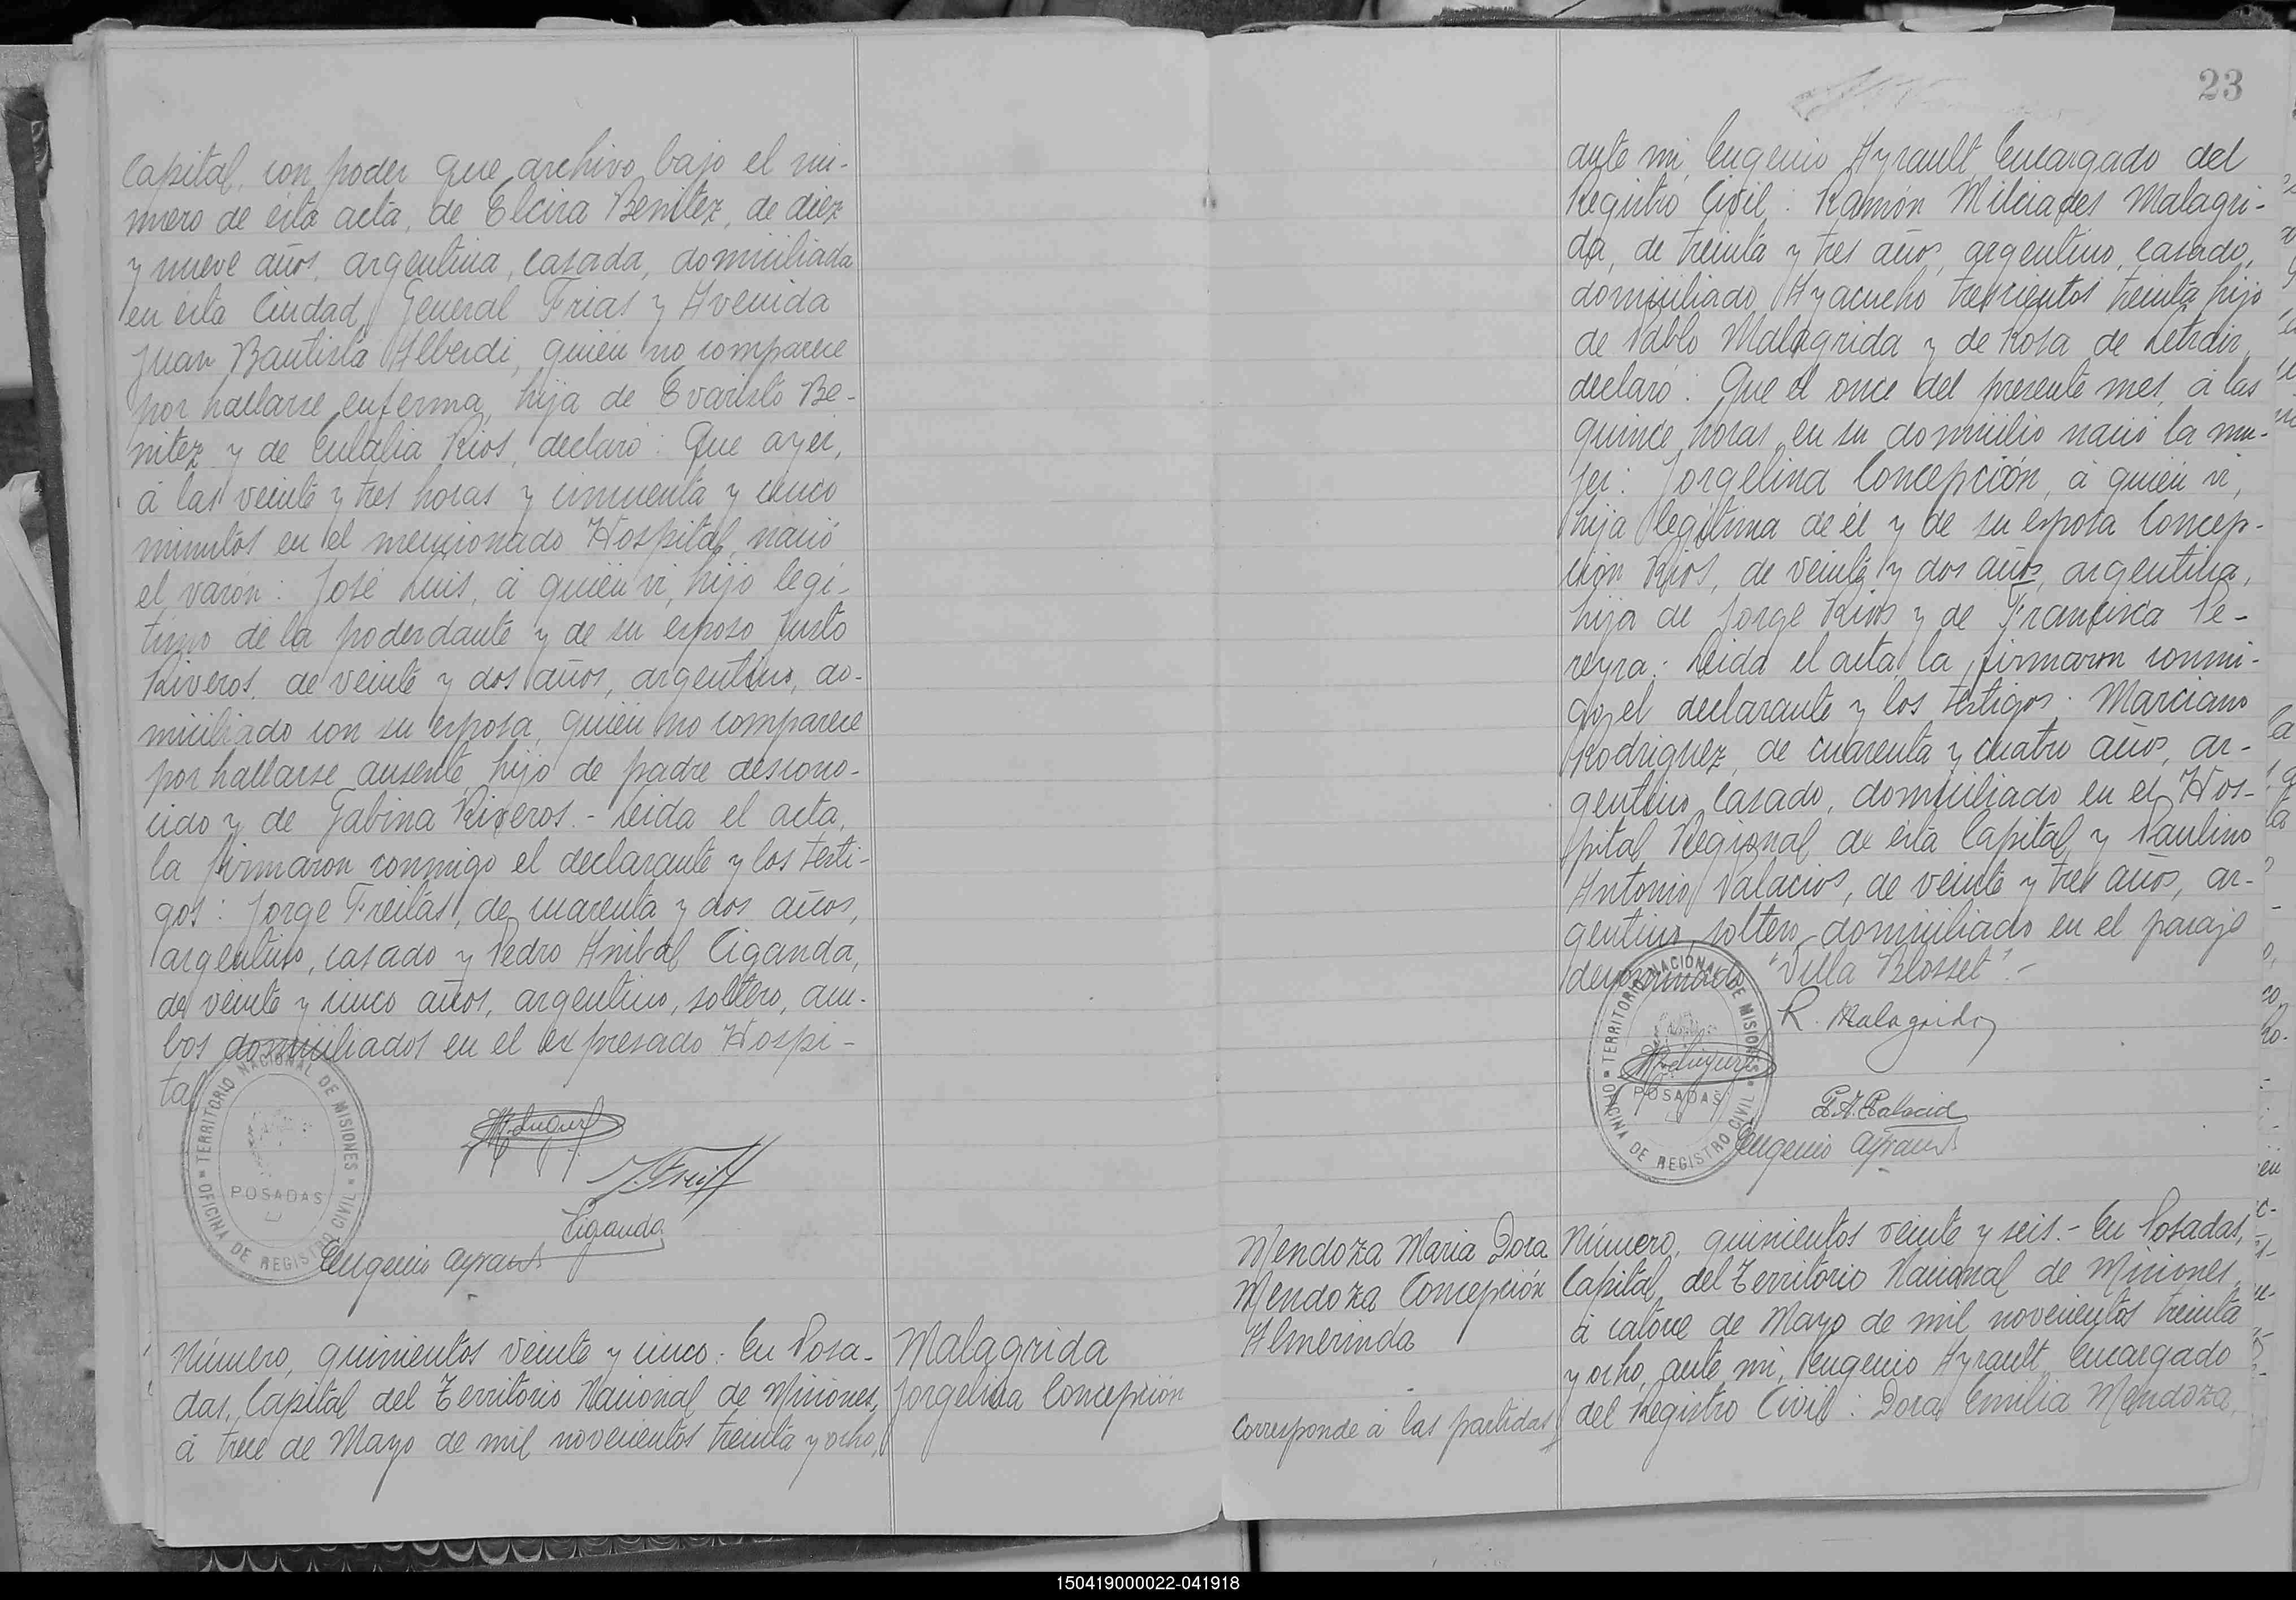 Capital, con poder que archivo bajo el nú-
mero de ésta acta, de Elcira Benitez, de diez
y nueve años, argentina, casada, domiciliada
en ésta Ciudad, General Frias y Avenida
Juan Bautista Alberdi, quién no comparece
por hallarse enferma, hija de Evaristo Be-
nitez y de Eulalia Rios, declaró: Que ayer,
á las veinte y tres horas y cincuenta y cinco
minutos en el mencionado Hospital, nació
el varón: José Luis, á quién vi, hijo legí-
timo de la poderdante y de su esposo Justo
Riveros, de veinte y dos años, argentino, do-
miciliado con su esposa, quién no comparece
por hallarse ausente, hijo de padre descono-
cido y de Gabina Riveros.- Leida el acta,
la firmaron conmigo el declarante y los testi-
gos: Jorge Freitas, de cuarenta y dos años,
argentino, casado y Pedro Anibal Ciganda,
de veinte y cinco años, argentino, soltero, am-
bos domiciliados en el expresado Hospi-
tal
TERRITORIO NACIONAL DE MISIONES
POSADAS
OFICINA DE REGISTRO CIVIL
J. Freitas
Ciganda
Eugenio Ayrault
Número, quinientos veinte y cinco.- En Posa-
das, Capital del Territorio Nacional de Misiones,
á trece de Mayo de mil novecientos treinta y ocho,
Malagrida
Jorgelina Concepción
23
ante mi, Eugenio Ayrault, Encargado del
Registro Civil: Ramón Milciades Malagri-
da, de treinta y tres años, argentino, casado,
domiciliado Ayacucho trescientos treinta, hijo
de Pablo Malagrida y de Rosa de
declaró: Que el once del presente mes, á las
quince horas, en su domicilio nació la mu-
jer: Jorgelina Concepción, á quién vi,
hija legítima de él y de su esposa Concep-
ción Rios, de veinte y dos años, argentina,
hija de Jorge Rios y de Francisca Pe-
reyra: Leida el acta, la firmaron conmi-
go, el declarante y los testigos: Marciano
Rodriguez, de cuarenta y cuatro años, ar-
gentino, casado, domiciliado en el Hos-
pital Regional de ésta Capital, y Paulino
Antonio Palacios, de veinte y tres años, ar-
gentino, soltero, domiciliado en el paraje
denominado "Villa Blosset".-
TERRITORIO NACIONAL DE MISIONES
POSADAS
OFICINA DE REGISTRO CIVIL
R. Malagrida
P. A. Palacio
Eugenio Ayrault
Mendoza Maria Dora
Mendoza Concepción
Almerinda
Corresponde á las partidas
Número, quinientos veinte y seis.- En Posadas,
Capital, del Territorio Nacional de Misiones,
á catorce de Mayo de mil novecientos treinta
y ocho, ante mi, Eugenio Ayrault, Encargado
del Registro Civil: Dora Emilia Mendoza,
150419000022-041918